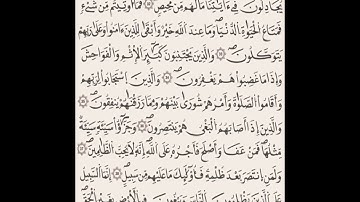 يُجَٰدِلُونَ فِىٓ ءَايَٰتِنَا مَا لَهُم مِّن مَّحِيصٍ ۝ فَمَآ أُوتِيتُم مِّن شَىْءٍ
فَمَتَٰعُ ٱلْحَيَوٰةِ ٱلدُّنْيَا وَمَا عِندَ ٱللَّهِ خَيْرٌ وَأَبْقَىٰ لِلَّذِينَ ءَامَنُوا۟ وَعَلَىٰ رَبِّهِمْ
يَتَوَكَّلُونَ ۝ وَٱلَّذِينَ يَجْتَنِبُونَ كَبَٰٓئِرَ ٱلْإِثْمِ وَٱلْفَوَٰحِشَ
وَإِذَا مَا غَضِبُوا۟ هُمْ يَغْفِرُونَ ۝ وَٱلَّذِينَ ٱسْتَجَابُوا۟ لِرَبِّهِمْ
وَأَقَامُوا۟ ٱلصَّلَوٰةَ وَأَمْرُهُمْ شُورَىٰ بَيْنَهُمْ وَمِمَّا رَزَقْنَٰهُمْ يُنفِقُونَ ۝
وَٱلَّذِينَ إِذَآ أَصَابَهُمُ ٱلْبَغْىُ هُمْ يَنتَصِرُونَ ۝ وَجَزَٰٓؤُا۟ سَيِّئَةٍ سَيِّئَةٌ
مِّثْلُهَا فَمَنْ عَفَا وَأَصْلَحَ فَأَجْرُهُۥ عَلَى ٱللَّهِ إِنَّهُۥ لَا يُحِبُّ ٱلظَّٰلِمِينَ ۝
وَلَمَنِ ٱنتَصَرَ بَعْدَ ظُلْمِهِۦ فَأُو۟لَٰٓئِكَ مَا عَلَيْهِم مِّن سَبِيلٍ ۝ إِنَّمَا ٱلسَّبِيلُ
عَلَى ٱلَّذِينَ يَظْلِمُونَ ٱلنَّاسَ وَيَبْغُونَ فِى ٱلْأَرْضِ بِغَيْرِ ٱلْحَقِّ